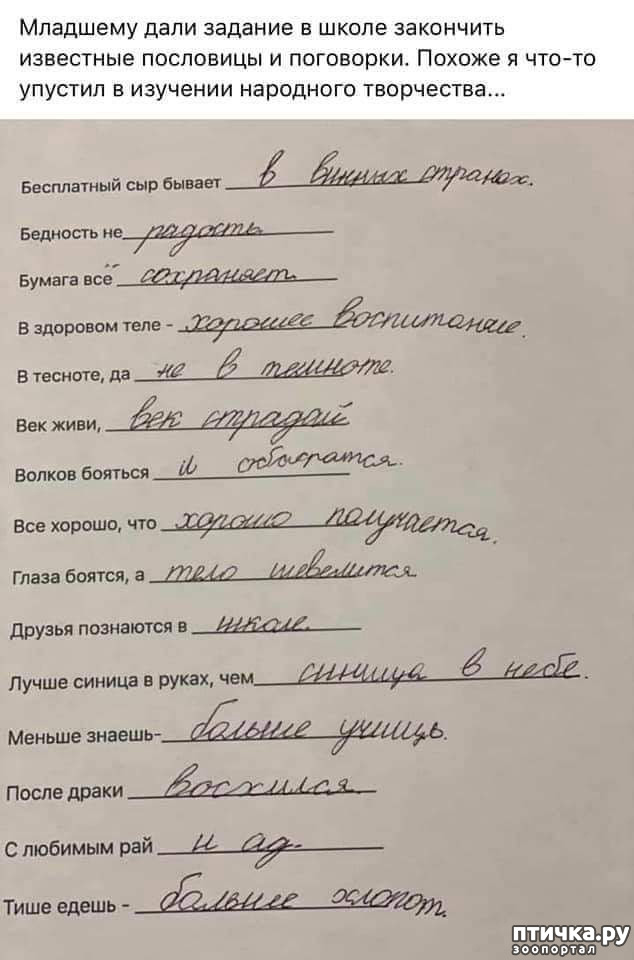 Младшему дали задание в школе закончить
известные пословицы и поговорки. Похоже я что-то
упустил в изучении народного творчества...
Бесплатный сыр бывает в винных странах.
Бедность не радость
Бумага всё сохраняет.
В здоровом теле - хорошее воспитание.
В тесноте, да не в темноте.
Век живи, век страдай
Волков бояться и
Все хорошо, что хорошо получается.
Глаза боятся, а тело шевелится
Друзья познаются в школе.
Лучше синица в руках, чем синица в небе.
Меньше знаешь- больше учишь.
После драки
С любимым рай и ад.
Тише едешь - больше хлопот.
птичка.ру
зоопортал